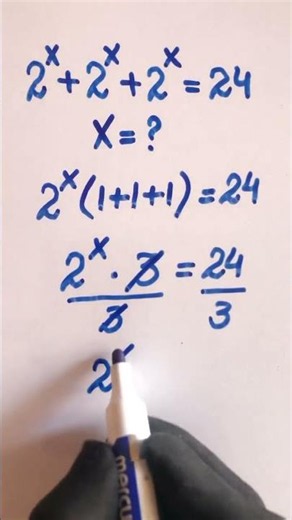 2^x + 2^x + 2^x = 24
x = ?
2^x (1+1+1) = 24
2^x · 3 / 3 = 24 / 3
2^x
mercu